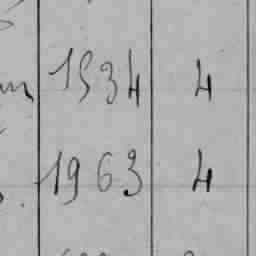 1534 4
1963 4